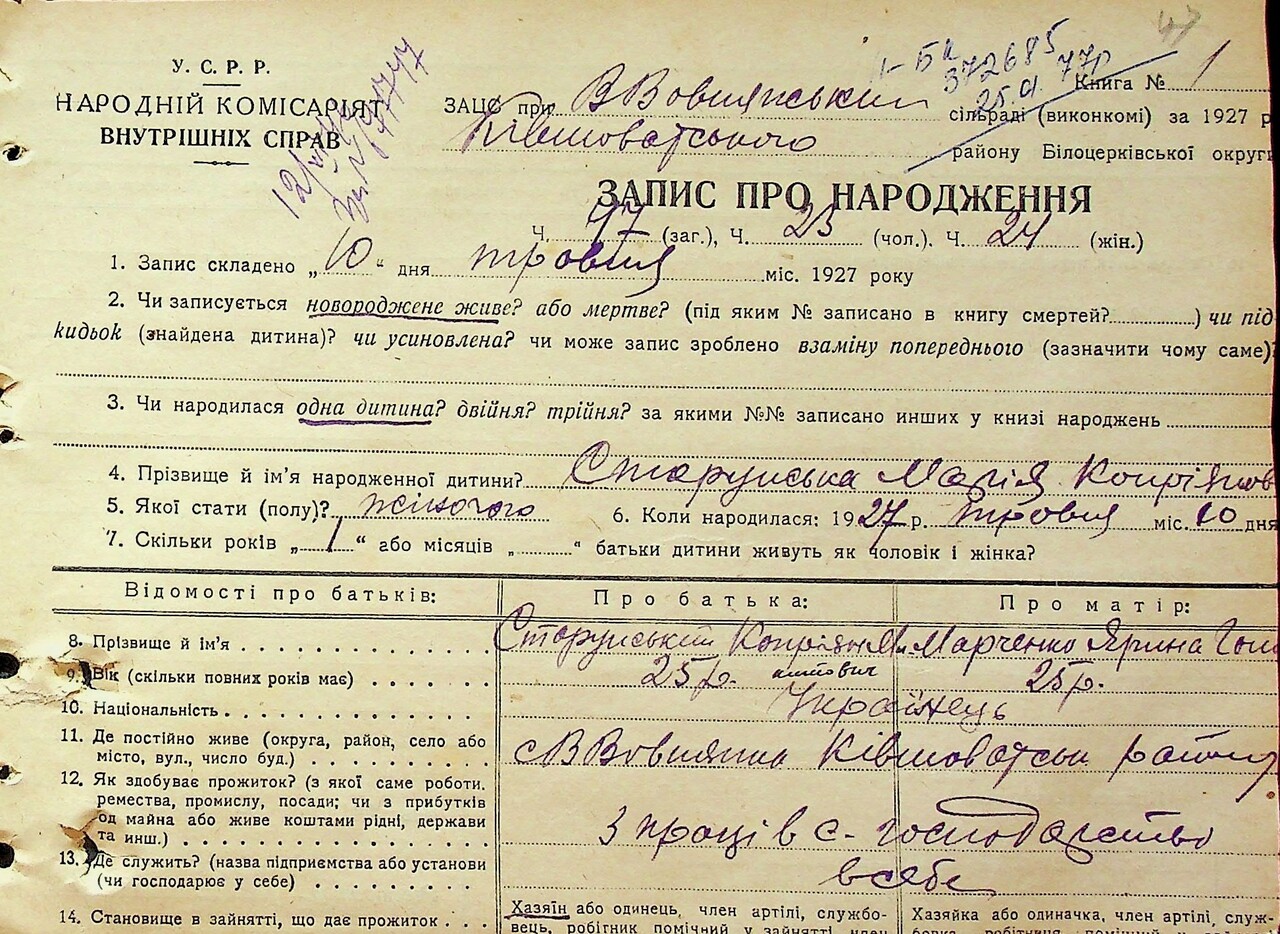 У. С. Р. Р.
НАРОДНІЙ КОМІСАРІЯТ
ВНУТРІШНІХ СПРАВ
І-БК
372685
25.01.77р
Книга № 1
ЗАЦС при В Вовнянський сільраді (виконкомі) за 1927 р
Ківшоватського району Білоцерківської округи
ЗАПИС ПРО НАРОДЖЕННЯ
Ч. 47 (заг.), Ч. 23 (чол.). Ч. 24 (жін.)
1. Запис складено „10“ дня травня міс. 1927 року
2. Чи записується новороджене живе? або мертве? (під яким № записано в книгу смертей?) чи під
кидьок (знайдена дитина)? чи усиновлена? чи може запис зроблено взаміну попереднього (зазначити чому саме)?
3. Чи народилась одна дитина? двійня? трійня? за якими №№ записано инших у книзі народжень
4. Прізвище й ім’я народженної дитини? Марія
5. Якої стати (полу)? жіночого 6. Коли народилася: 1927 р. травня міс. 10 дня
7. Скільки років „1“ або місяців „ “ батьки дитини живуть як чоловік і жінка?
Відомості про батьків: Про батька: Про матір:
8. Прізвище й ім’я Марченко Ярина
9. Вік (скільки повних років має) 25 р. 25 р.
10. Національність Українець
11. Де постійно живе (округа, район, село або
місто, вул., число буд.) с В Вовнянка Ківшоватськ району
12. Як здобуває прожиток? (з якої саме роботи.
ремества, промислу, посади; чи з прибутків
од майна або живе коштами рідні, держави
та инш.) З праці в с-господарство
13. Де служить? (назва підприємства або установи
(чи господарює у себе) в себе
14. Становище в зайнятті, що дає прожиток
Хазяїн або одинець, член артілі, службо-
вець, робітник помічний у зайнятті член
Хазяйка або одиначка, член артілі, служ-
бовка, робітниця помічна у